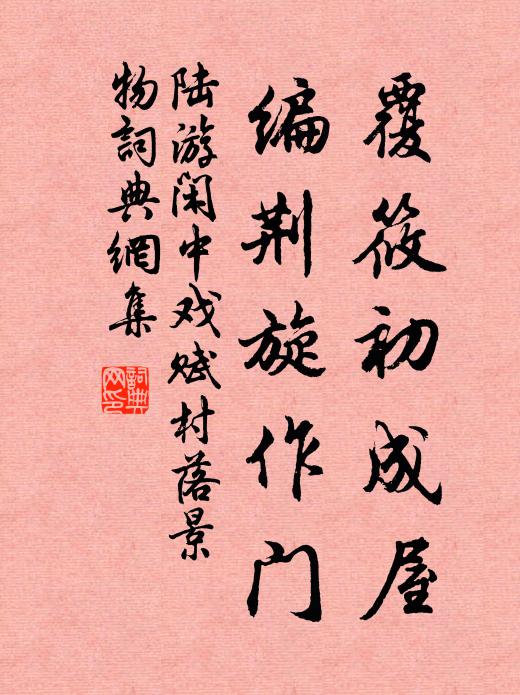 覆筱初成屋
编荆旋作门
陆游闲中戏赋村落景
物詞典網集
詞典网印